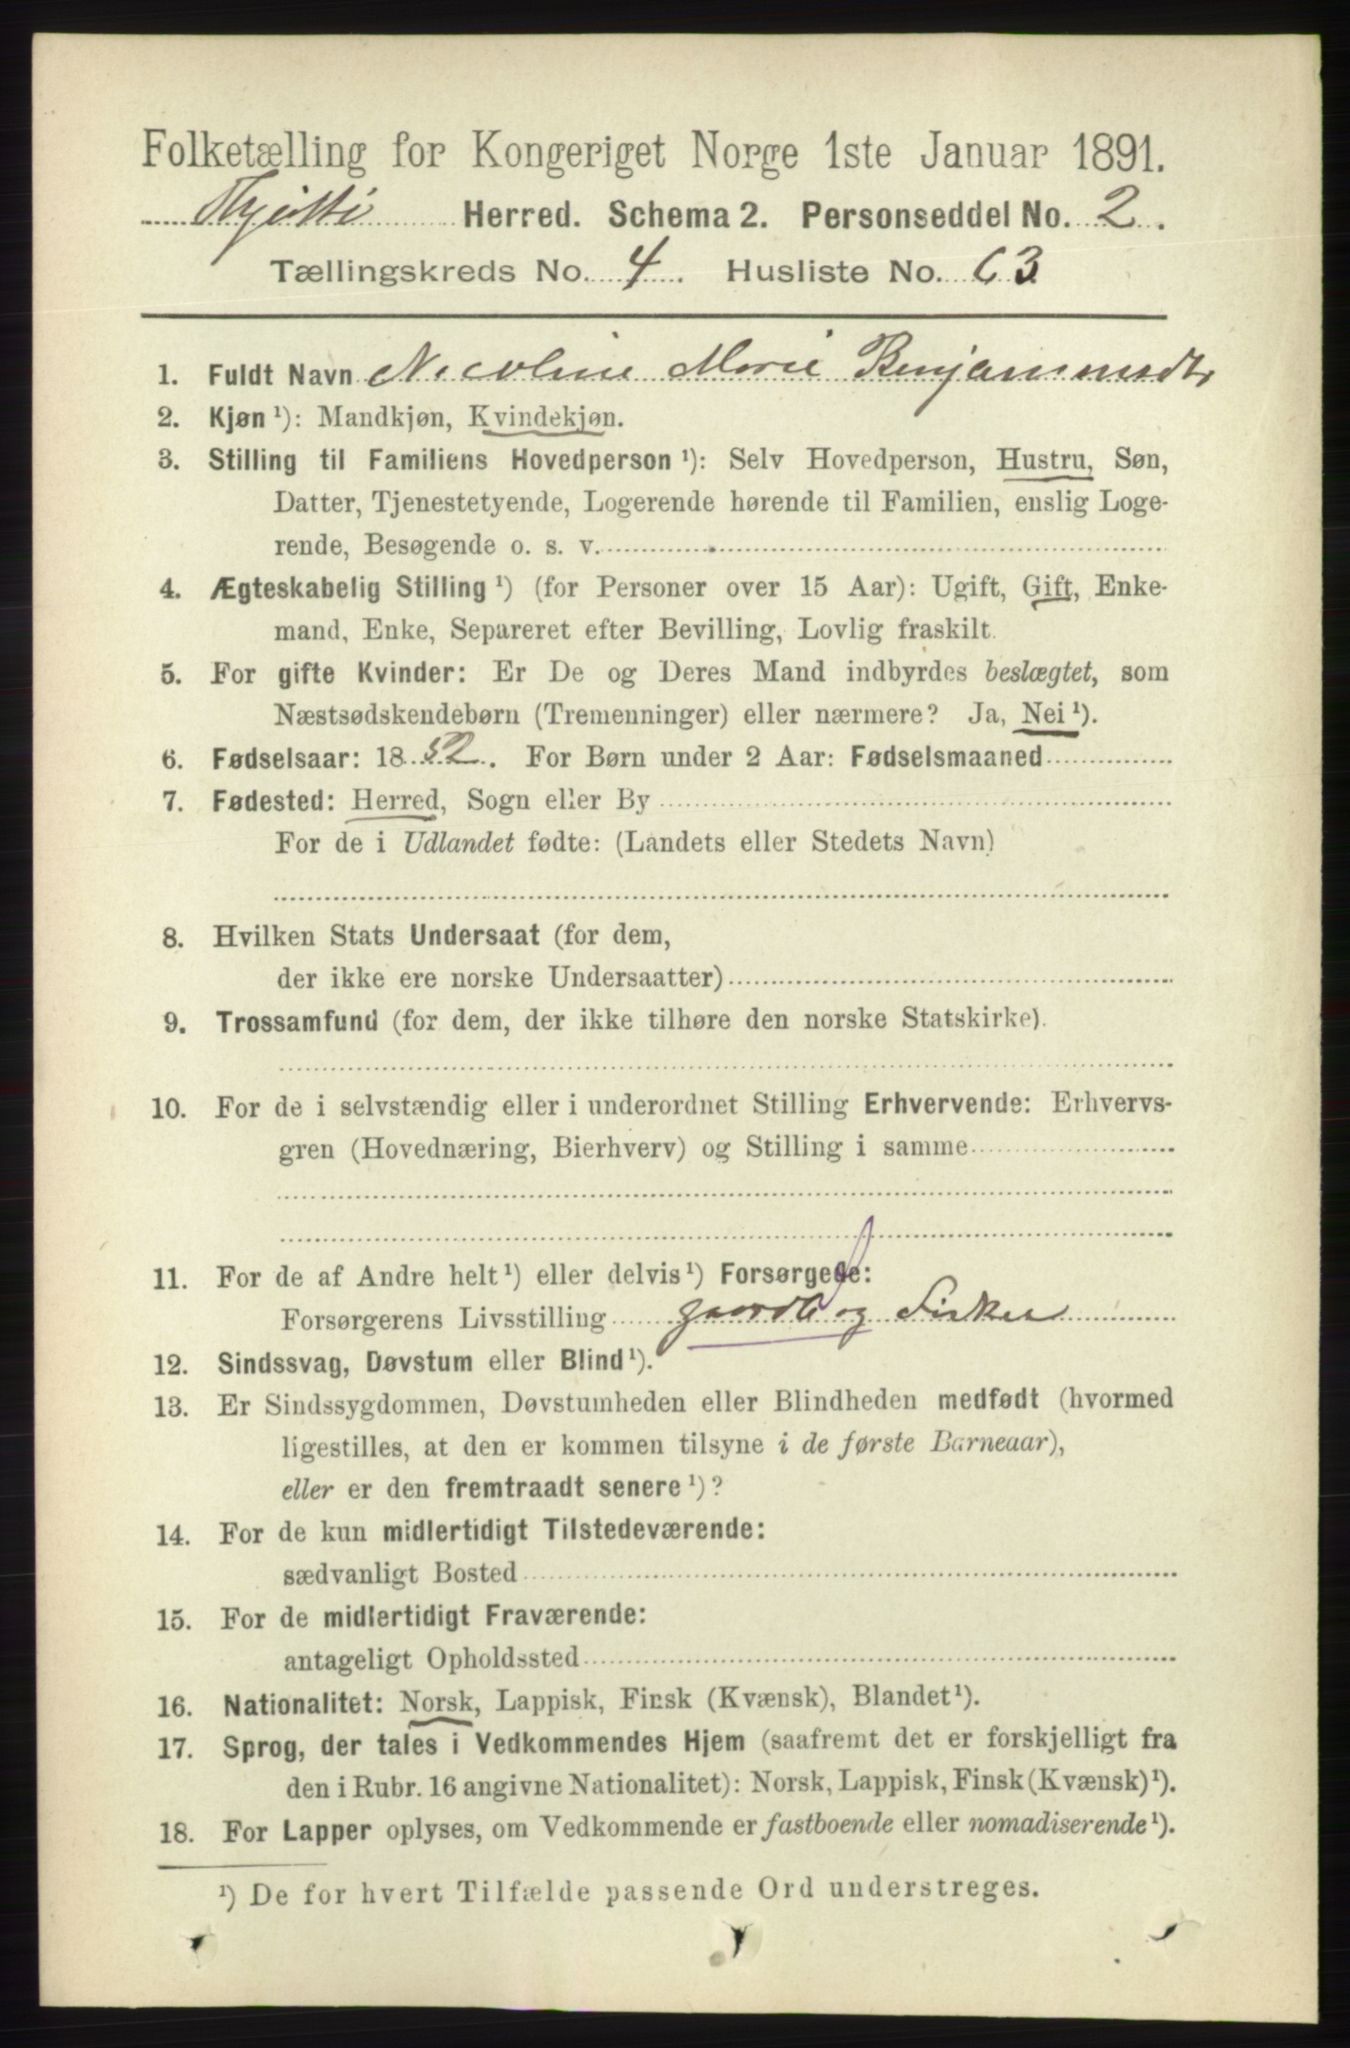 Folketælling for Kongeriget Norge 1ste Januar 1891.
Thjøttø Herred. Schema 2. Personseddel No. 2.
Tællingskreds No. 4. Husliste No. 63
1. Fuldt Navn Nicoline Marie Benjaminsdtr
2. Kjøn ¹): Mandkjøn, Kvindekjøn.
3. Stilling til Familiens Hovedperson ¹): Selv Hovedperson, Hustru, Søn,
Datter, Tjenestetyende, Logerende hørende til Familien, enslig Loge-
rende, Besøgende o. s. v.
4. Ægteskabelig Stilling ¹) (for Personer over 15 Aar): Ugift, Gift, Enke-
mand, Enke, Separeret efter Bevilling, Lovlig fraskilt.
5. For gifte Kvinder: Er De og Deres Mand indbyrdes beslægtet, som
Næstsødskendebørn (Tremenninger) eller nærmere? Ja, Nei ¹).
6. Fødselsaar: 1852. For Børn under 2 Aar: Fødselsmaaned
7. Fødested: Herred, Sogn eller By
For de i Udlandet fødte: (Landets eller Stedets Navn)
8. Hvilken Stats Undersaat (for dem,
der ikke ere norske Undersaatter)
9. Trossamfund (for dem, der ikke tilhøre den norske Statskirke).
10. For de i selvstændig eller i underordnet Stilling Erhvervende: Erhvervs-
gren (Hovednæring, Bierhverv) og Stilling i samme
11. For de af Andre helt ¹) eller delvis ¹) Forsørgede:
Forsørgerens Livsstilling gaardb og Fisker
12. Sindssvag, Døvstum eller Blind ¹).
13. Er Sindssygdommen, Døvstumheden eller Blindheden medfødt (hvormed
ligestilles, at den er kommen tilsyne i de første Barneaar),
eller er den fremtraadt senere ¹)?
14. For de kun midlertidigt Tilstedeværende:
sædvanligt Bosted
15. For de midlertidigt Fraværende:
antageligt Opholdssted
16. Nationalitet: Norsk, Lappisk, Finsk (Kvænsk), Blandet ¹).
17. Sprog, der tales i Vedkommendes Hjem (saafremt det er forskjelligt fra
den i Rubr. 16 angivne Nationalitet): Norsk, Lappisk, Finsk (Kvænsk) ¹).
18. For Lapper oplyses, om Vedkommende er fastboende eller nomadiserende ¹).
¹) De for hvert Tilfælde passende Ord understreges.